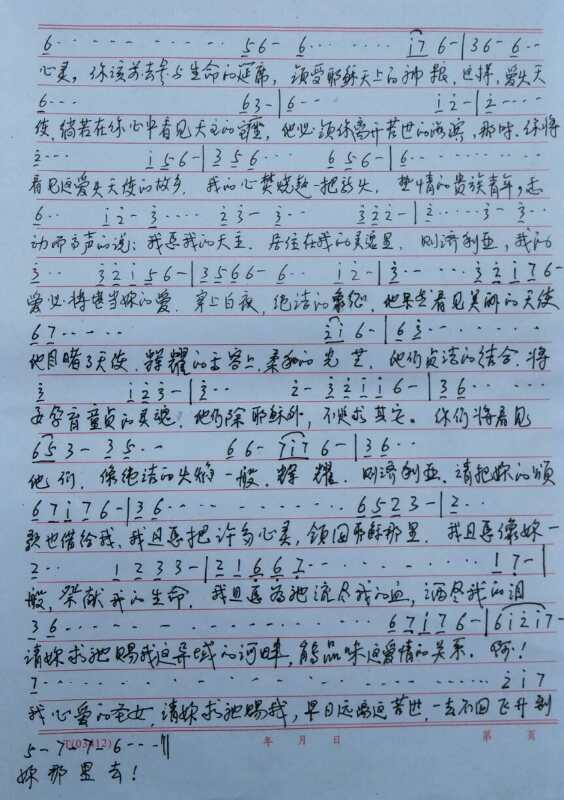 6·· - - - - - - - - - 5 6 - 6·· - - - - i7 6 - | 3 6 - 6··
心灵,你该前去参与生命的延席,领受耶稣天上的神粮,这样,爱火天
6··· 6 3 - | 6·· i 2 - | 2 - - - -
使,倘若在你心中看见天主的,他必领你离开苦世的海滨,那时,你将
2 - - - - i 5 6 - | 3 5 6·· 6 5 6 - | 6·· - - - - - -
看见这爱火天使的故乡.我的心焚烧起一把新火,热情的贵族青年,志
6·· i 2 - 3 - - - - 2 3 - 3·· 3 2 2 - | 2 - - - - 3 - 3··
动而高声的说:我愿我的天主.居住在我的灵魂里.则济利亚,我的
3·· 3 2 i 5 6 - | 3 5 6 6 - 6·· i 2 - | 3·· - - - 3 2 i 7 6 -
爱必将堪当妳的爱.穿上白衣,绝洁的,他果然看见美丽的天使
6 7 - - - - - 2i 6 - | 6 3 - - - - - - -
他目睹了天使.辉耀的主容上,柔和的光芒.他们贞洁的结合.将
3 i 2 3 - | 2·· 2 - 3 2 i i 6 - | 3 6·· - -
要孕育童贞的灵魂.他们除耶稣外,不求其它。你们将看见
6 5 3 - - 3 5 - - 6 6 - 7 i 7 6 - | 3 6·· -
他们.像绝洁的火焰一般.辉耀.则济利亚.请把妳的颂
6 7 i 7 6 - | 3 6·· - - - - - - - - 6 5 2 3 - | 2··
歌也借给我,我且愿把许多心灵,领回耶稣那里.我且愿像妳一
2·· - - 1 2 3 3 - | 2 1 6 6 7 - - - - - - - - 1 7 - |
般,祭献我的生命.我且愿为祂流尽我的血,洒尽我的泪
3 6·· - - - - - - - - - - - 6 7 i 7 6 - | 6i2i7 -
请妳求祂赐我这异域的,能品味这爱情的关系.啊!
7 - - - - - - - - - - - - - - - - 2 i 7
我心爱的圣女,请妳求祂赐我,早日远离这苦世.一去不回飞升到
5 - 7 - 7 - 6 - - - ||
(03412) 年 月 日 第 页
妳那里去!